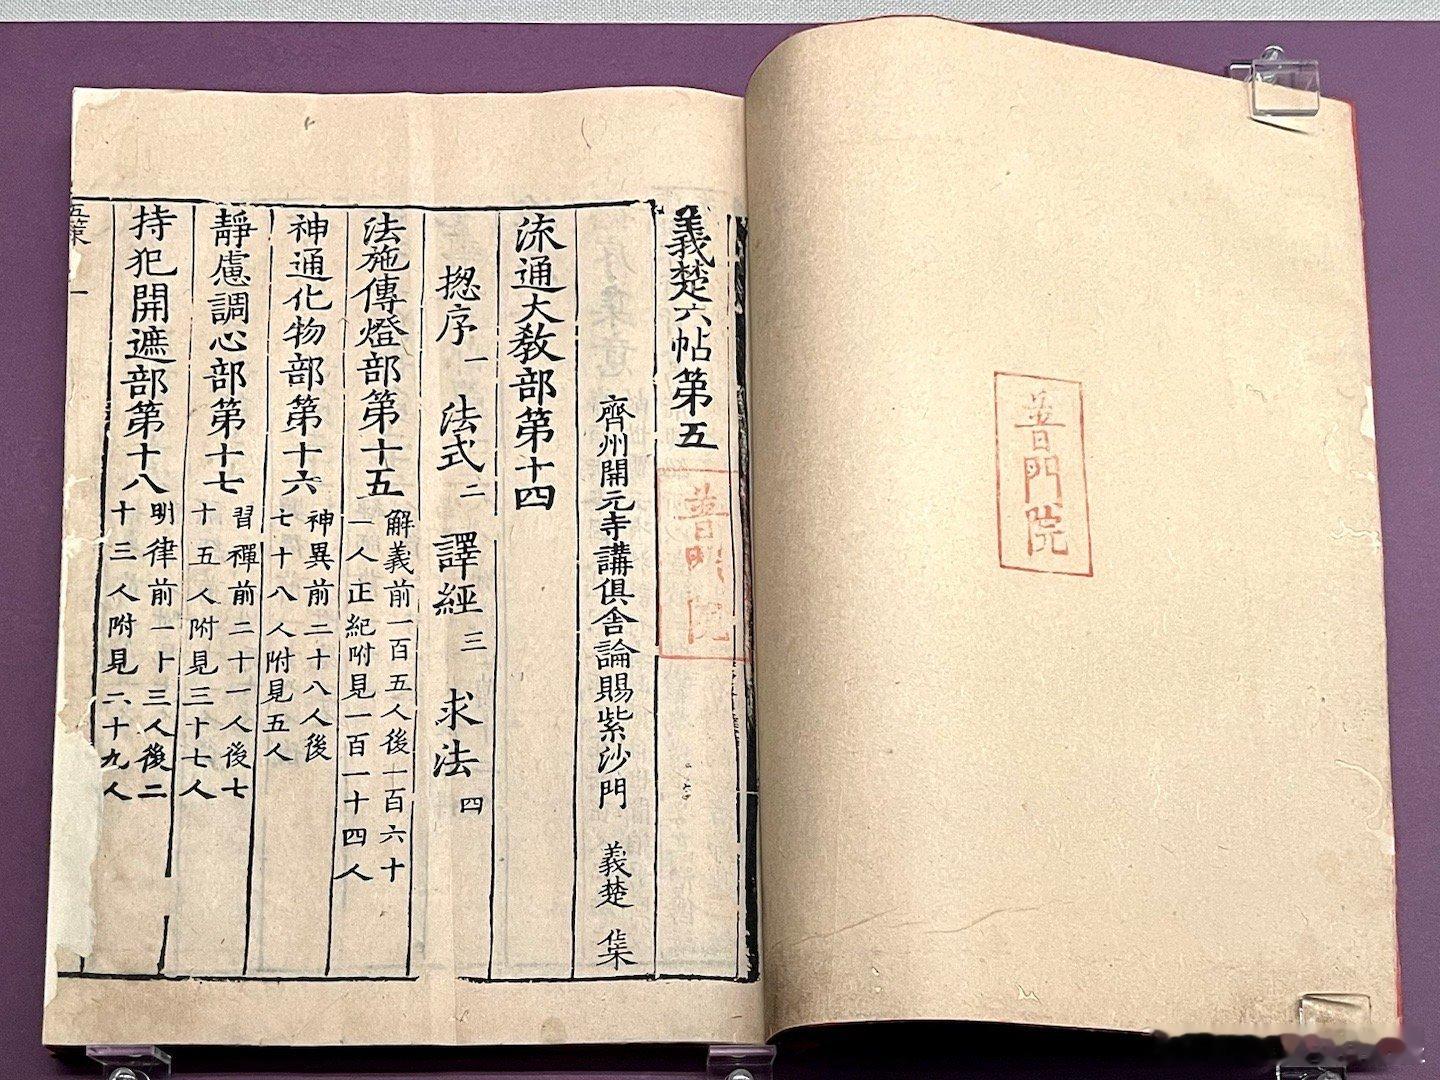 普門院
義楚六帖第五
普門院
齊州開元寺講俱舍論賜紫沙門 義楚 集
流通大教部第十四
揔序一 法式二 譯經三 求法四
法施傳燈部第十五
解義前一百五人後一百六十
一人正紀附見一百一十四人
神通化物部第十六
神異前二十八人後
七十八人附見五人
靜慮調心部第十七
習禪前二十一人後七
十五人附見三十七人
持犯開遮部第十八
明律前一十三人後二
十三人附見二十九人